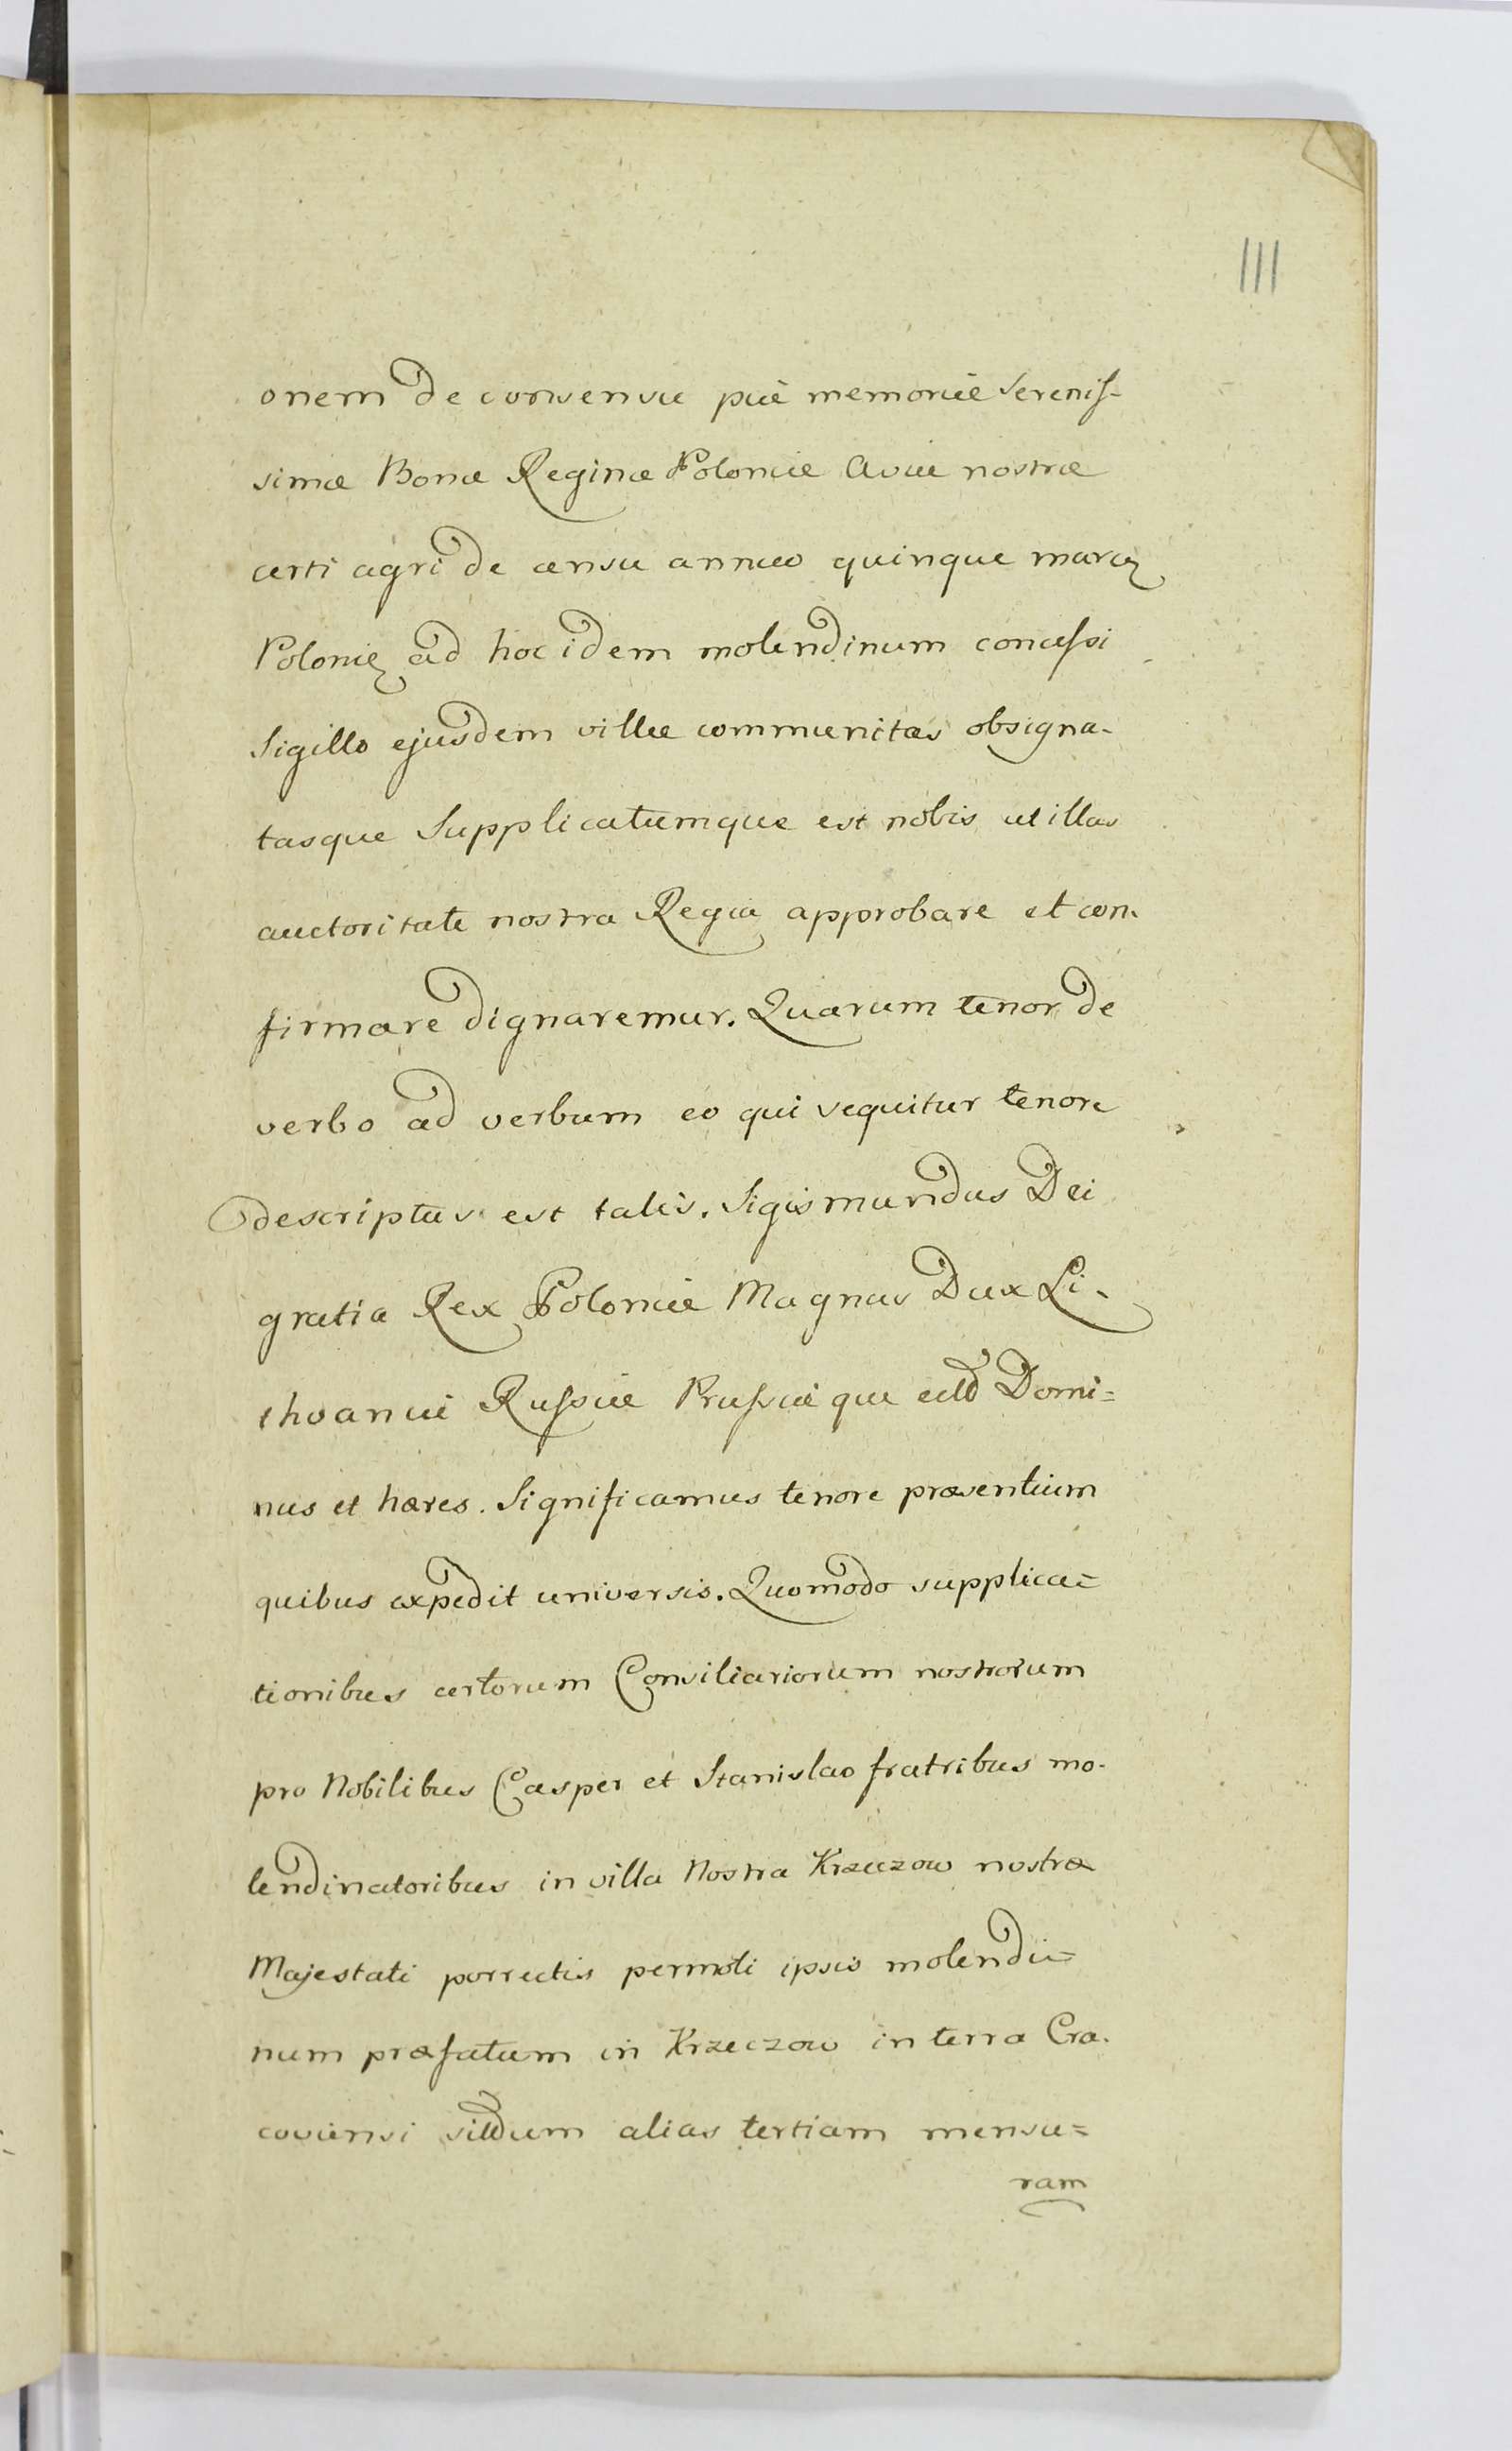 111
onem de consensu piæ memoriæ Sereniſ-
simæ Bonæ Reginæ Poloniæ Aviæ nostræ
certi agri de censu annuo quinque marcę
Polonię ad hoc idem molendinum conceſsi
Sigillo ejusdem villæ communitas obsigna-
tasque Supplicatumque est nobis ut illas
auctoritate nostra Regia approbare et con-
firmare dignaremur. Quarum tenor de
verbo ad verbum eo qui sequitur tenore
descriptus est talis. Sigismundus Dei
gratia Rex Poloniæ Magnus Dux Li-
thvaniæ Ruſsiæ Pruſsiæque etc Domi=
nus et hæres. Significamus tenore præsentium
quibus expedit universis. Quomodo supplica=
tionibus certorum Consiliariorum nostrorum
pro Nobilibus Casper et Stanislao fratribus mo-
lendinatoribus in villa Nostra Krzeczow nostræ
Majestati porrectis permoti ipsis molendi=
num præfatum in Krzeczow in terra Cra-
coviensi alias tertiam mensu=
ram